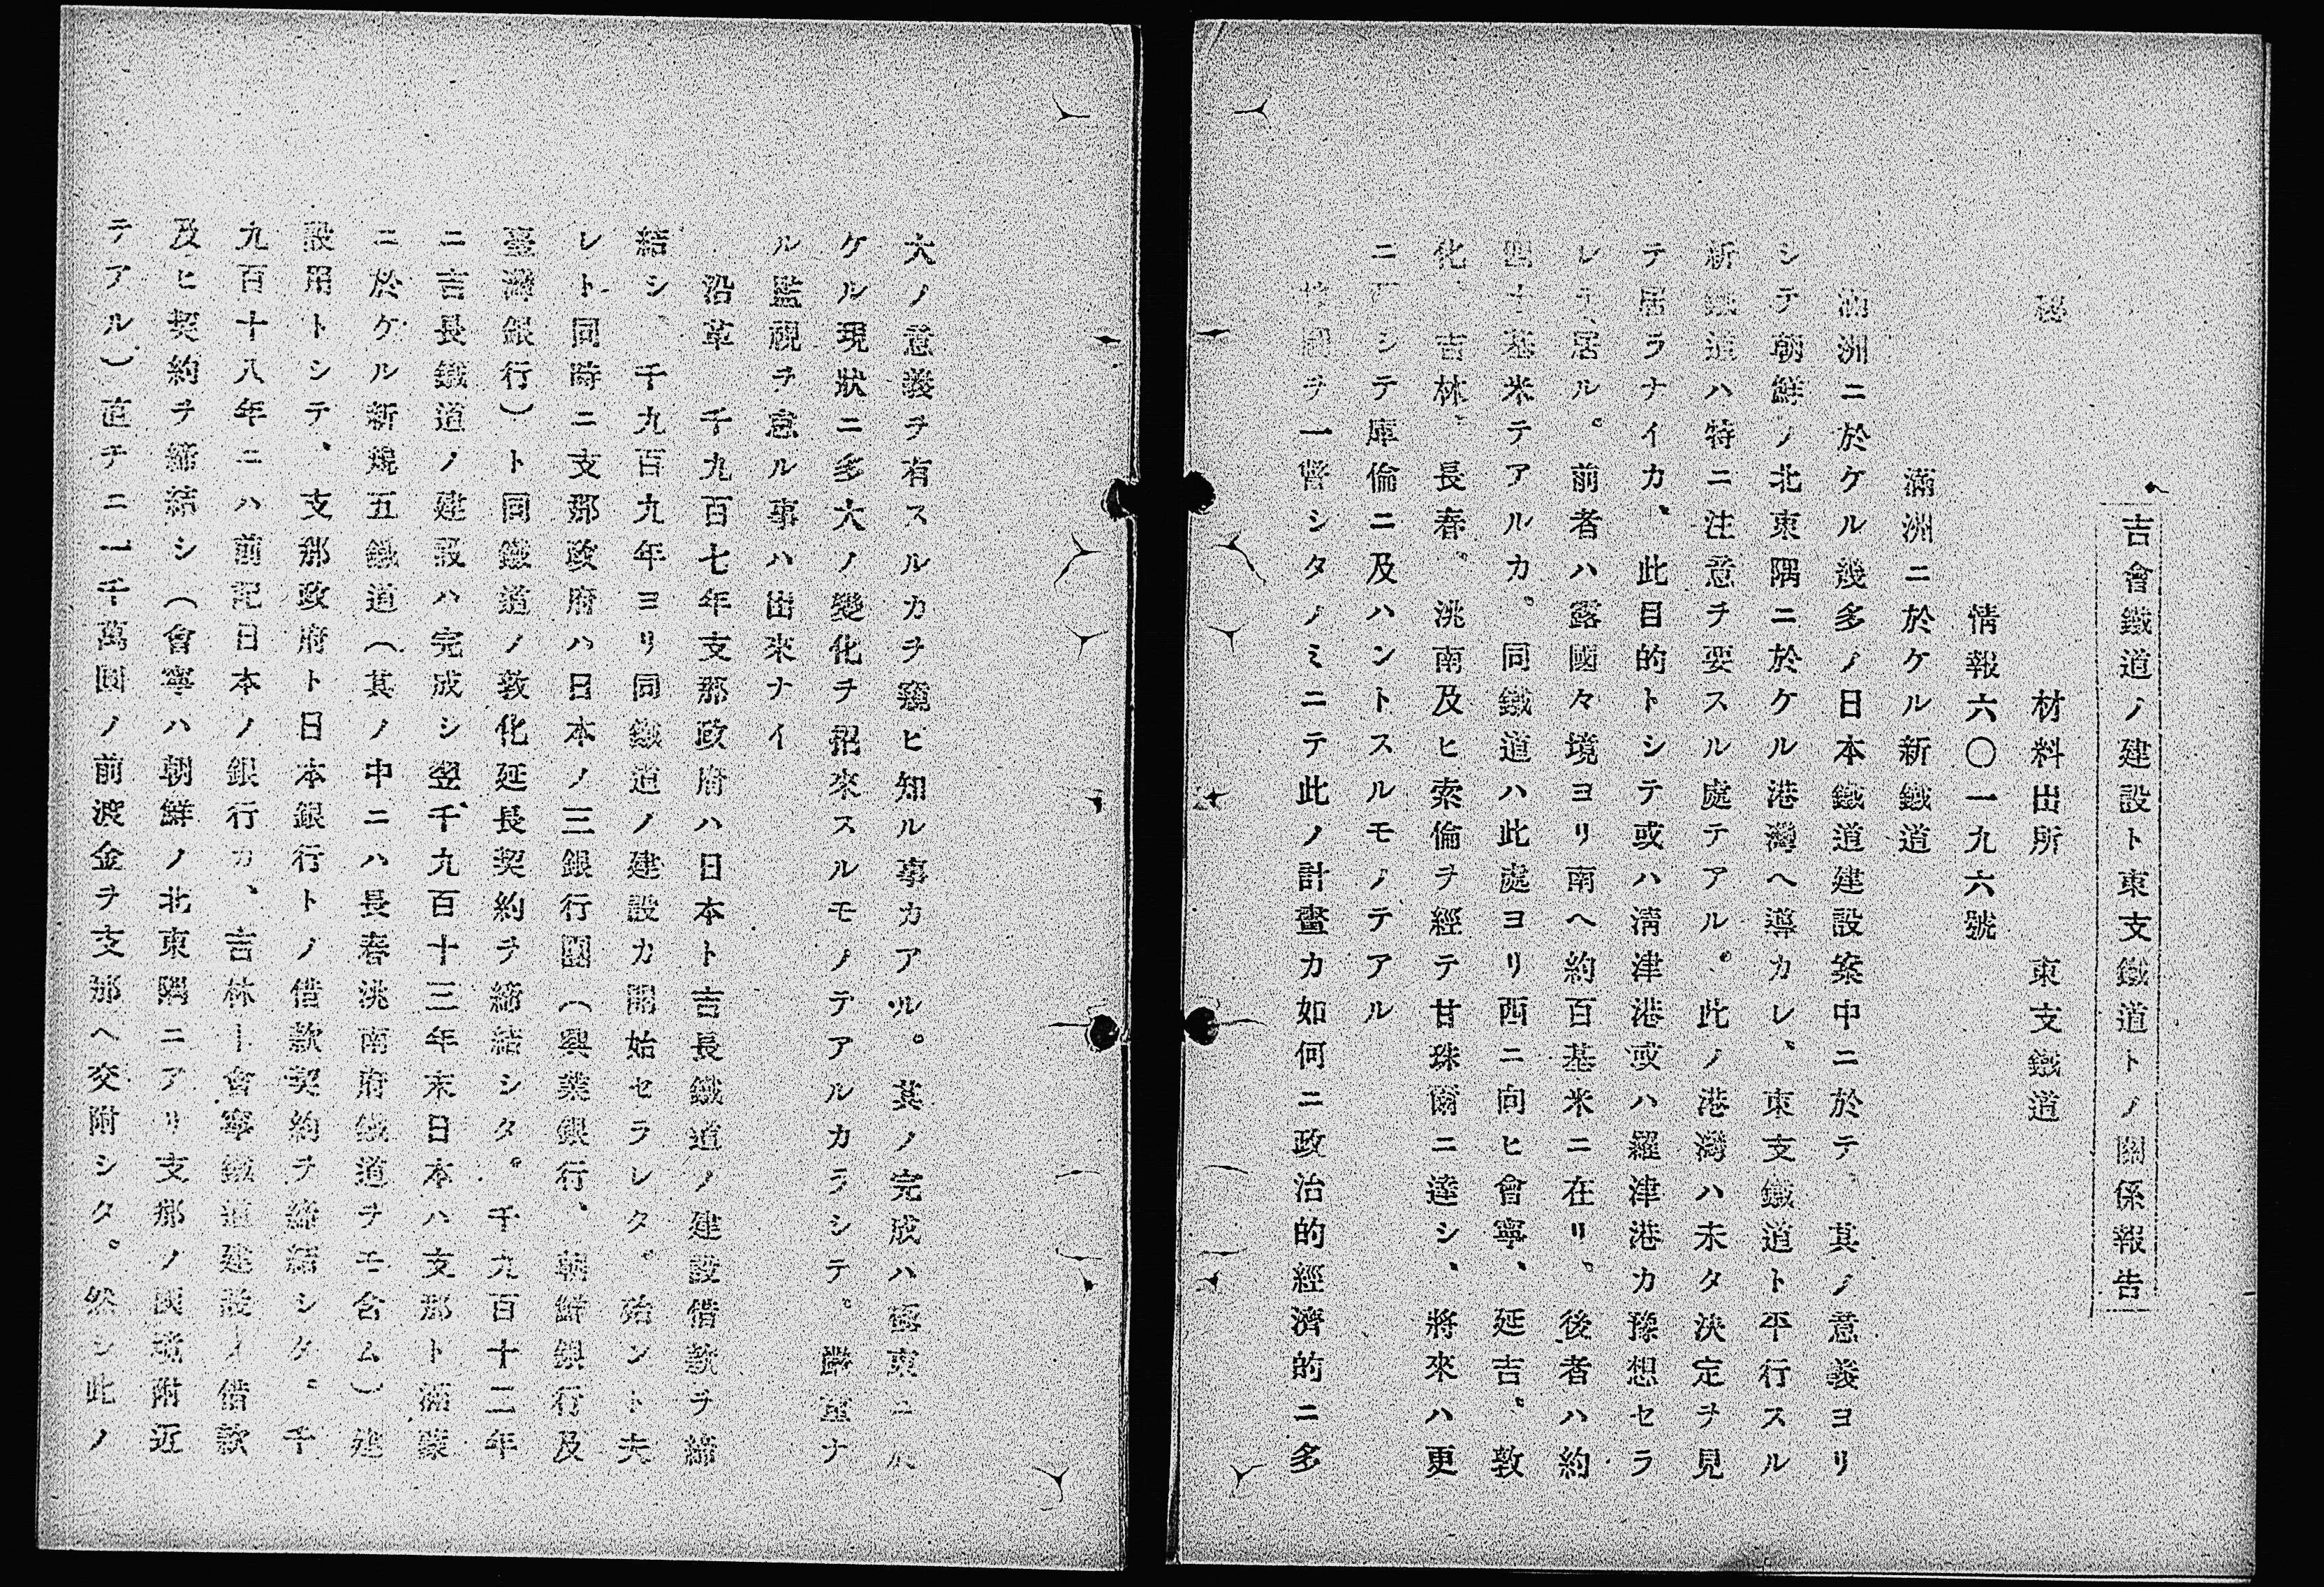 吉會鐵道ノ建設ト東支鐵道トノ關係報告
秘　材料出所　東支鐵道
情報六〇一九六號
滿洲ニ於ケル新鐵道
滿洲ニ於ケル幾多ノ日本鐵道建設案中ニ於テ、其ノ意義ヨリ
シテ朝鮮ノ北東隅ニ於ケル港灣ヘ導カレ、東支鐵道ト平行スル
新鐵道ハ特ニ注意ヲ要スル處テアル。此ノ港灣ハ未タ決定ヲ見
テ居ラナイカ、此目的トシテ或ハ淸津港或ハ羅津港カ豫想セラ
レテ居ル。前者ハ露國々境ヨリ南ヘ約百基米ニ在リ、後者ハ約
四十基米テアルカ。同鐵道ハ此處ヨリ西ニ向ヒ會寧、延吉、敦
化、吉林、長春。洮南及ヒ索倫ヲ經テ甘珠爾ニ達シ、將來ハ更
ニ シテ庫倫ニ及ハントスルモノテアル
地圖ヲ一瞥シタノミニテ此ノ計畫カ如何ニ政治的經濟的ニ多
大ノ意義ヲ有スルカヲ窺ヒ知ル事カアル。其ノ完成ハ極東ニ於
ケル現狀ニ多大ノ變化ヲ招來スルモノテアルカラシテ。嚴重ナ
ル監視ヲ怠ル事ハ出來ナイ
沿革　千九百七年支那政府ハ日本ト吉長鐵道ノ建設借款ヲ締
結シ、千九百九年ヨリ同鐵道ノ建設カ開始セラレタ。殆ント夫
レト同時ニ支那政府ハ日本ノ三銀行團（興業銀行、朝鮮銀行及
臺灣銀行）ト同鐵道ノ敦化延長契約ヲ締結シタ。千九百十二年
ニ吉長鐵道ノ建設ハ完成シ翌千九百十三年末日本ハ支那ト滿蒙
ニ於ケル新規五鐵道（其ノ中ニハ長春洮南府鐵道ヲモ含ム）建
設用トシテ、支那政府ト日本銀行トノ借款契約ヲ締結シタ。千
九百十八年ニハ前記日本ノ銀行カ、吉林ー會寧鐵道建設ノ借款
及ヒ契約ヲ締結シ（會寧ハ朝鮮ノ北東隅ニアリ支那ノ國境附近
テアル）直チニ一千萬圓ノ前渡金ヲ支那ヘ交附シタ。然シ此ノ